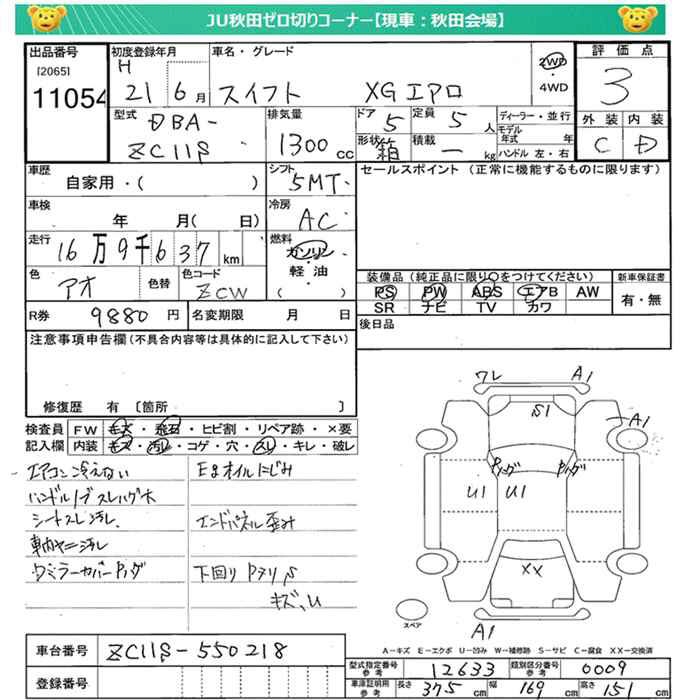 JU秋田ゼロ切りコーナー【現車：秋田会場】
出品番号
[2065]
11054
初度登録年月
H
21 6月
車名・グレード
スイフト XGエアロ
2WD
・
4WD
評価点
3
外装 内装
C D
型式
DBA-
ZC11S
排気量
1300 cc
ドア
5
定員
5 人
形状
箱
積載
ー kg
ディーラー・並行
モデル年式 年
ハンドル 左・右
車歴
自家用・( )
シフト
5MT
セールスポイント (正常に機能するものに限ります)
車検
年 月( 日)
冷房
AC
走行
16万9千637 km
燃料
ガソリン・
軽油
( )
色
アオ
色替
色コード
ZCW
装備品(純正品に限り○をつけてください)
PS PW ABS エアB AW
SR ナビ TV カワ
新車保証書
有・無
R券
9880 円
名変期限 月 日
後日品
注意事項申告欄(不具合内容等は具体的に記入して下さい)
修復歴 有 〔箇所 〕
検査員
記入欄
FW キズ・飛石・ヒビ割・リペア跡・×要
内装 キズ・汚レ・コゲ・穴・スレ・キレ・破レ
エアコン冷えない
ハンドル/ブスレハゲ大
シートスレ汚レ
車内ヤニ汚レ
ワミラーカバーPハゲ
Egオイルにじみ
エンドパネル歪み
下回りPヌリ,S
キズ,U
ワレ
A1
S1
A1
Pハゲ
Pハゲ
U1
U1
XX
A1
スペア
A-キズ E-エクボ U-凹み W-補修跡 S-サビ C-腐食 XX-交換済
車台番号
ZC11S-550218
登録番号
型式指定番号
参考
12633
類別区分番号
参考
0009
車庫証明用
参考
長さ 375 cm
幅 169 cm
高さ 151 cm